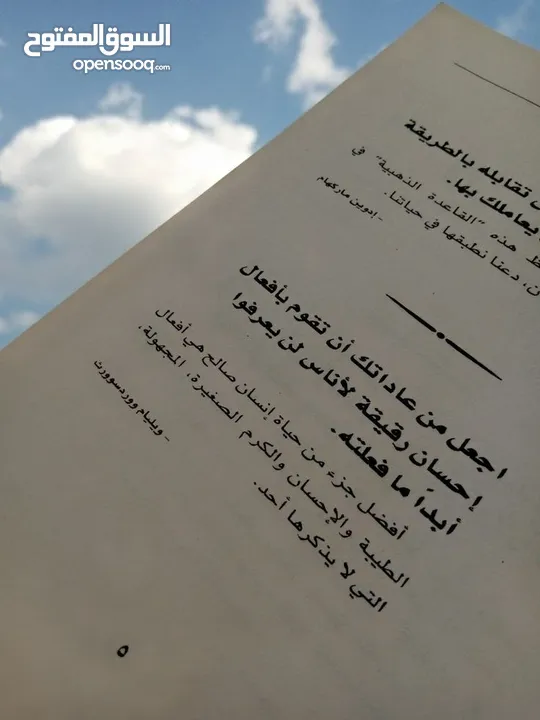 السوق المفتوح
opensooq.com
تقابله بالطريقة
يعاملك بها.
هذه "القاعدة الذهبية" في
دعنا نطبقها في حياتنا.
- إدوين ماركهام
اجعل من عاداتك أن تقوم بأفعال
إحسان رقيقة لأناس لن يعرفوا
أبداً ما فعلته.
أفضل جزء من حياة إنسان صالح هي أفعال
الطيبة والإحسان والكرم الصغيرة، المجهولة،
التي لا يذكرها أحد.
- ويليام ووردسوورث
٥